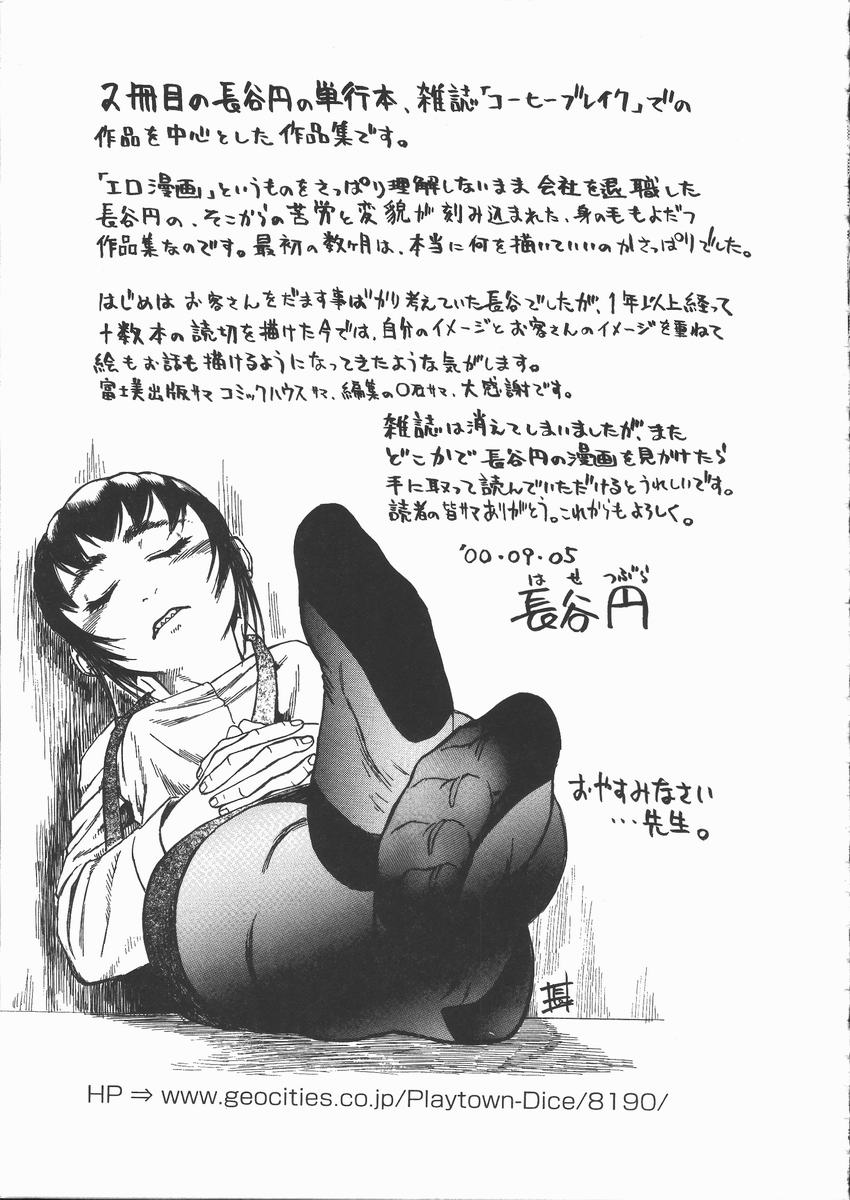 2冊目の長谷円の単行本、雑誌「コーヒーブレイク」での
作品を中心とした作品集です。
「エロ漫画」というものをさっぱり理解しないまま会社を退職した
長谷円の、そこからの苦労と変貌が刻み込まれた、身の毛もよだつ
作品集なのです。最初の数ヶ月は、本当に何を描いていいのかさっぱりでした。
はじめはお客さんをだます事ばかり考えていた長谷でしたが、1年以上経って
十数本の読切を描けた今では、自分のイメージとお客さんのイメージを重ねて
絵もお話も描けるようになってきたような気がします。
富士美出版サマ コミックハウスサマ、編集の〇石サマ、大感謝です。
雑誌は消えてしまいましたが、また
どこかで長谷円の漫画を見かけたら
手に取って読んでいただけるとうれしいです。
読者の皆サマありがとう。これからもよろしく。
'00・09・05
はせ つぶら
長谷円
おやすみなさい
…先生。
HP ⇒ www.geocities.co.jp/Playtown-Dice/8190/